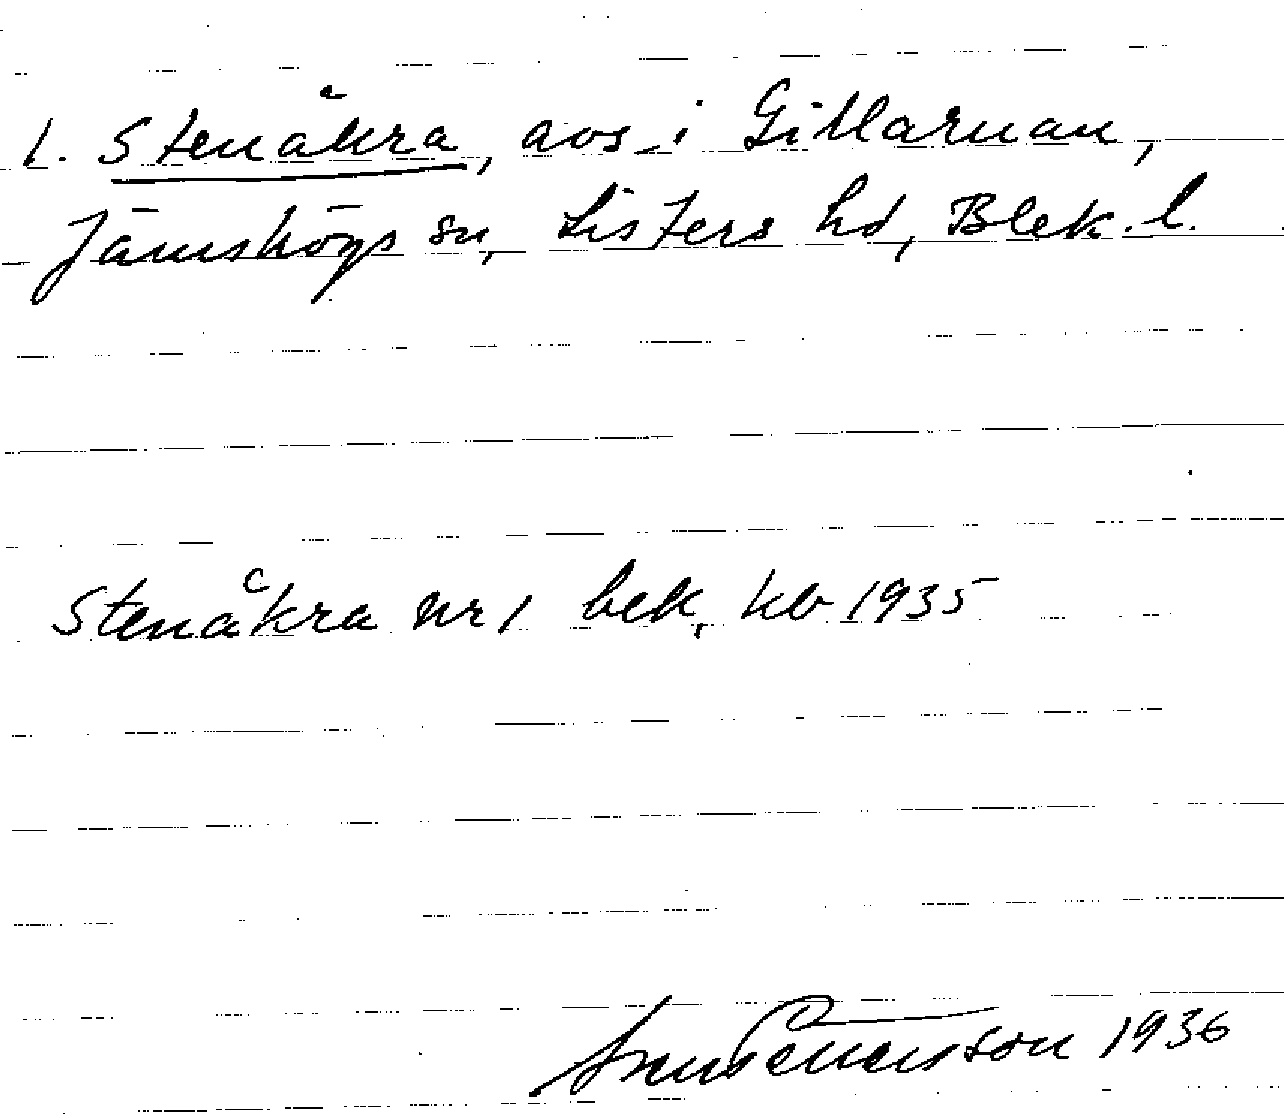 1. Stenåkra, avs. i Gillaruan,
Jämshögs sn, Listers hd, Blek. l.
Stenåkra nr 1 bek. kb 1935
1936